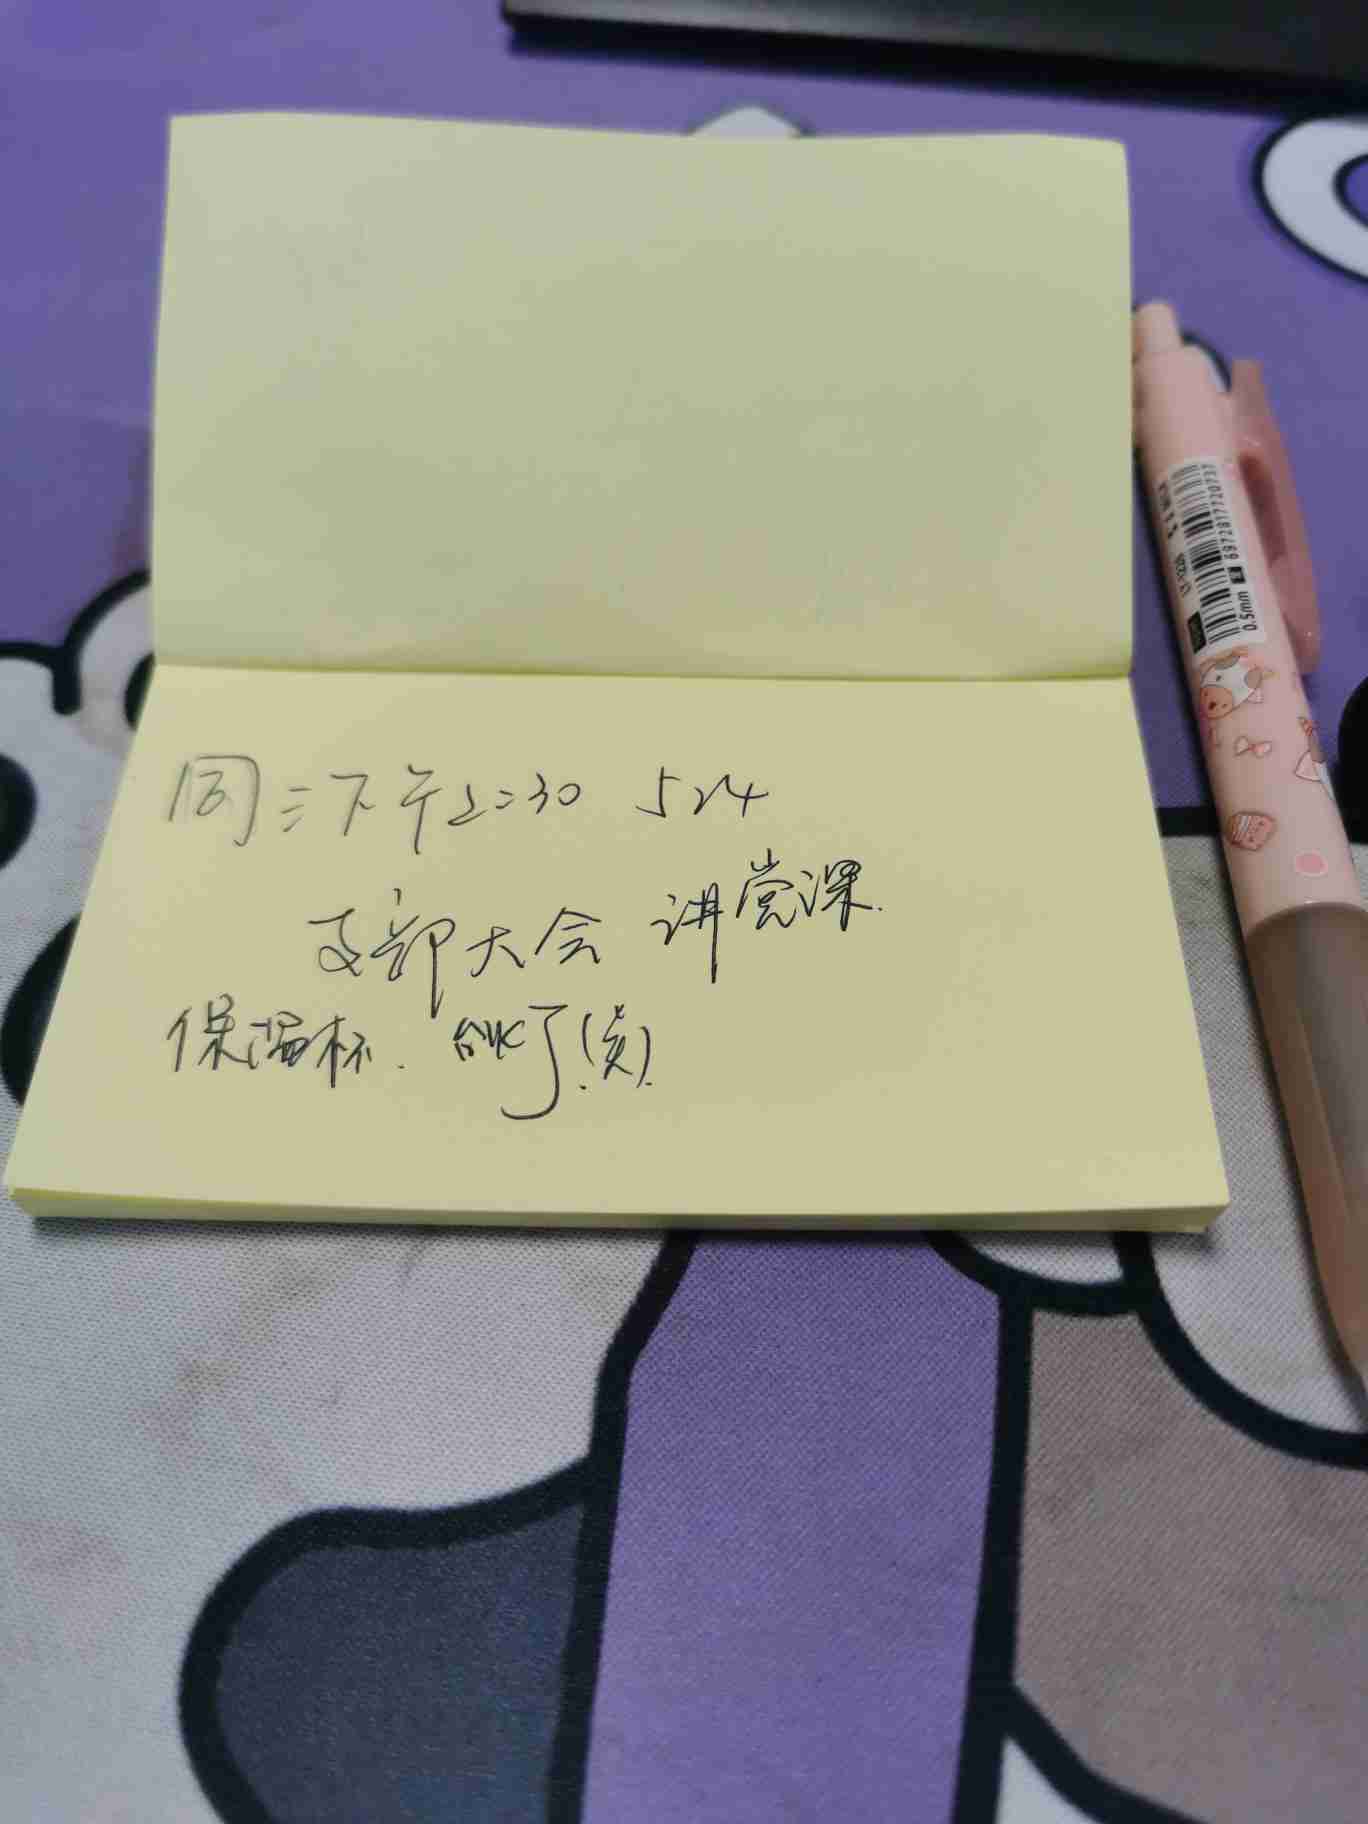 周二下午2:30 524
支部大会 讲党课.
保温杯.
0.5mm
6972817720737